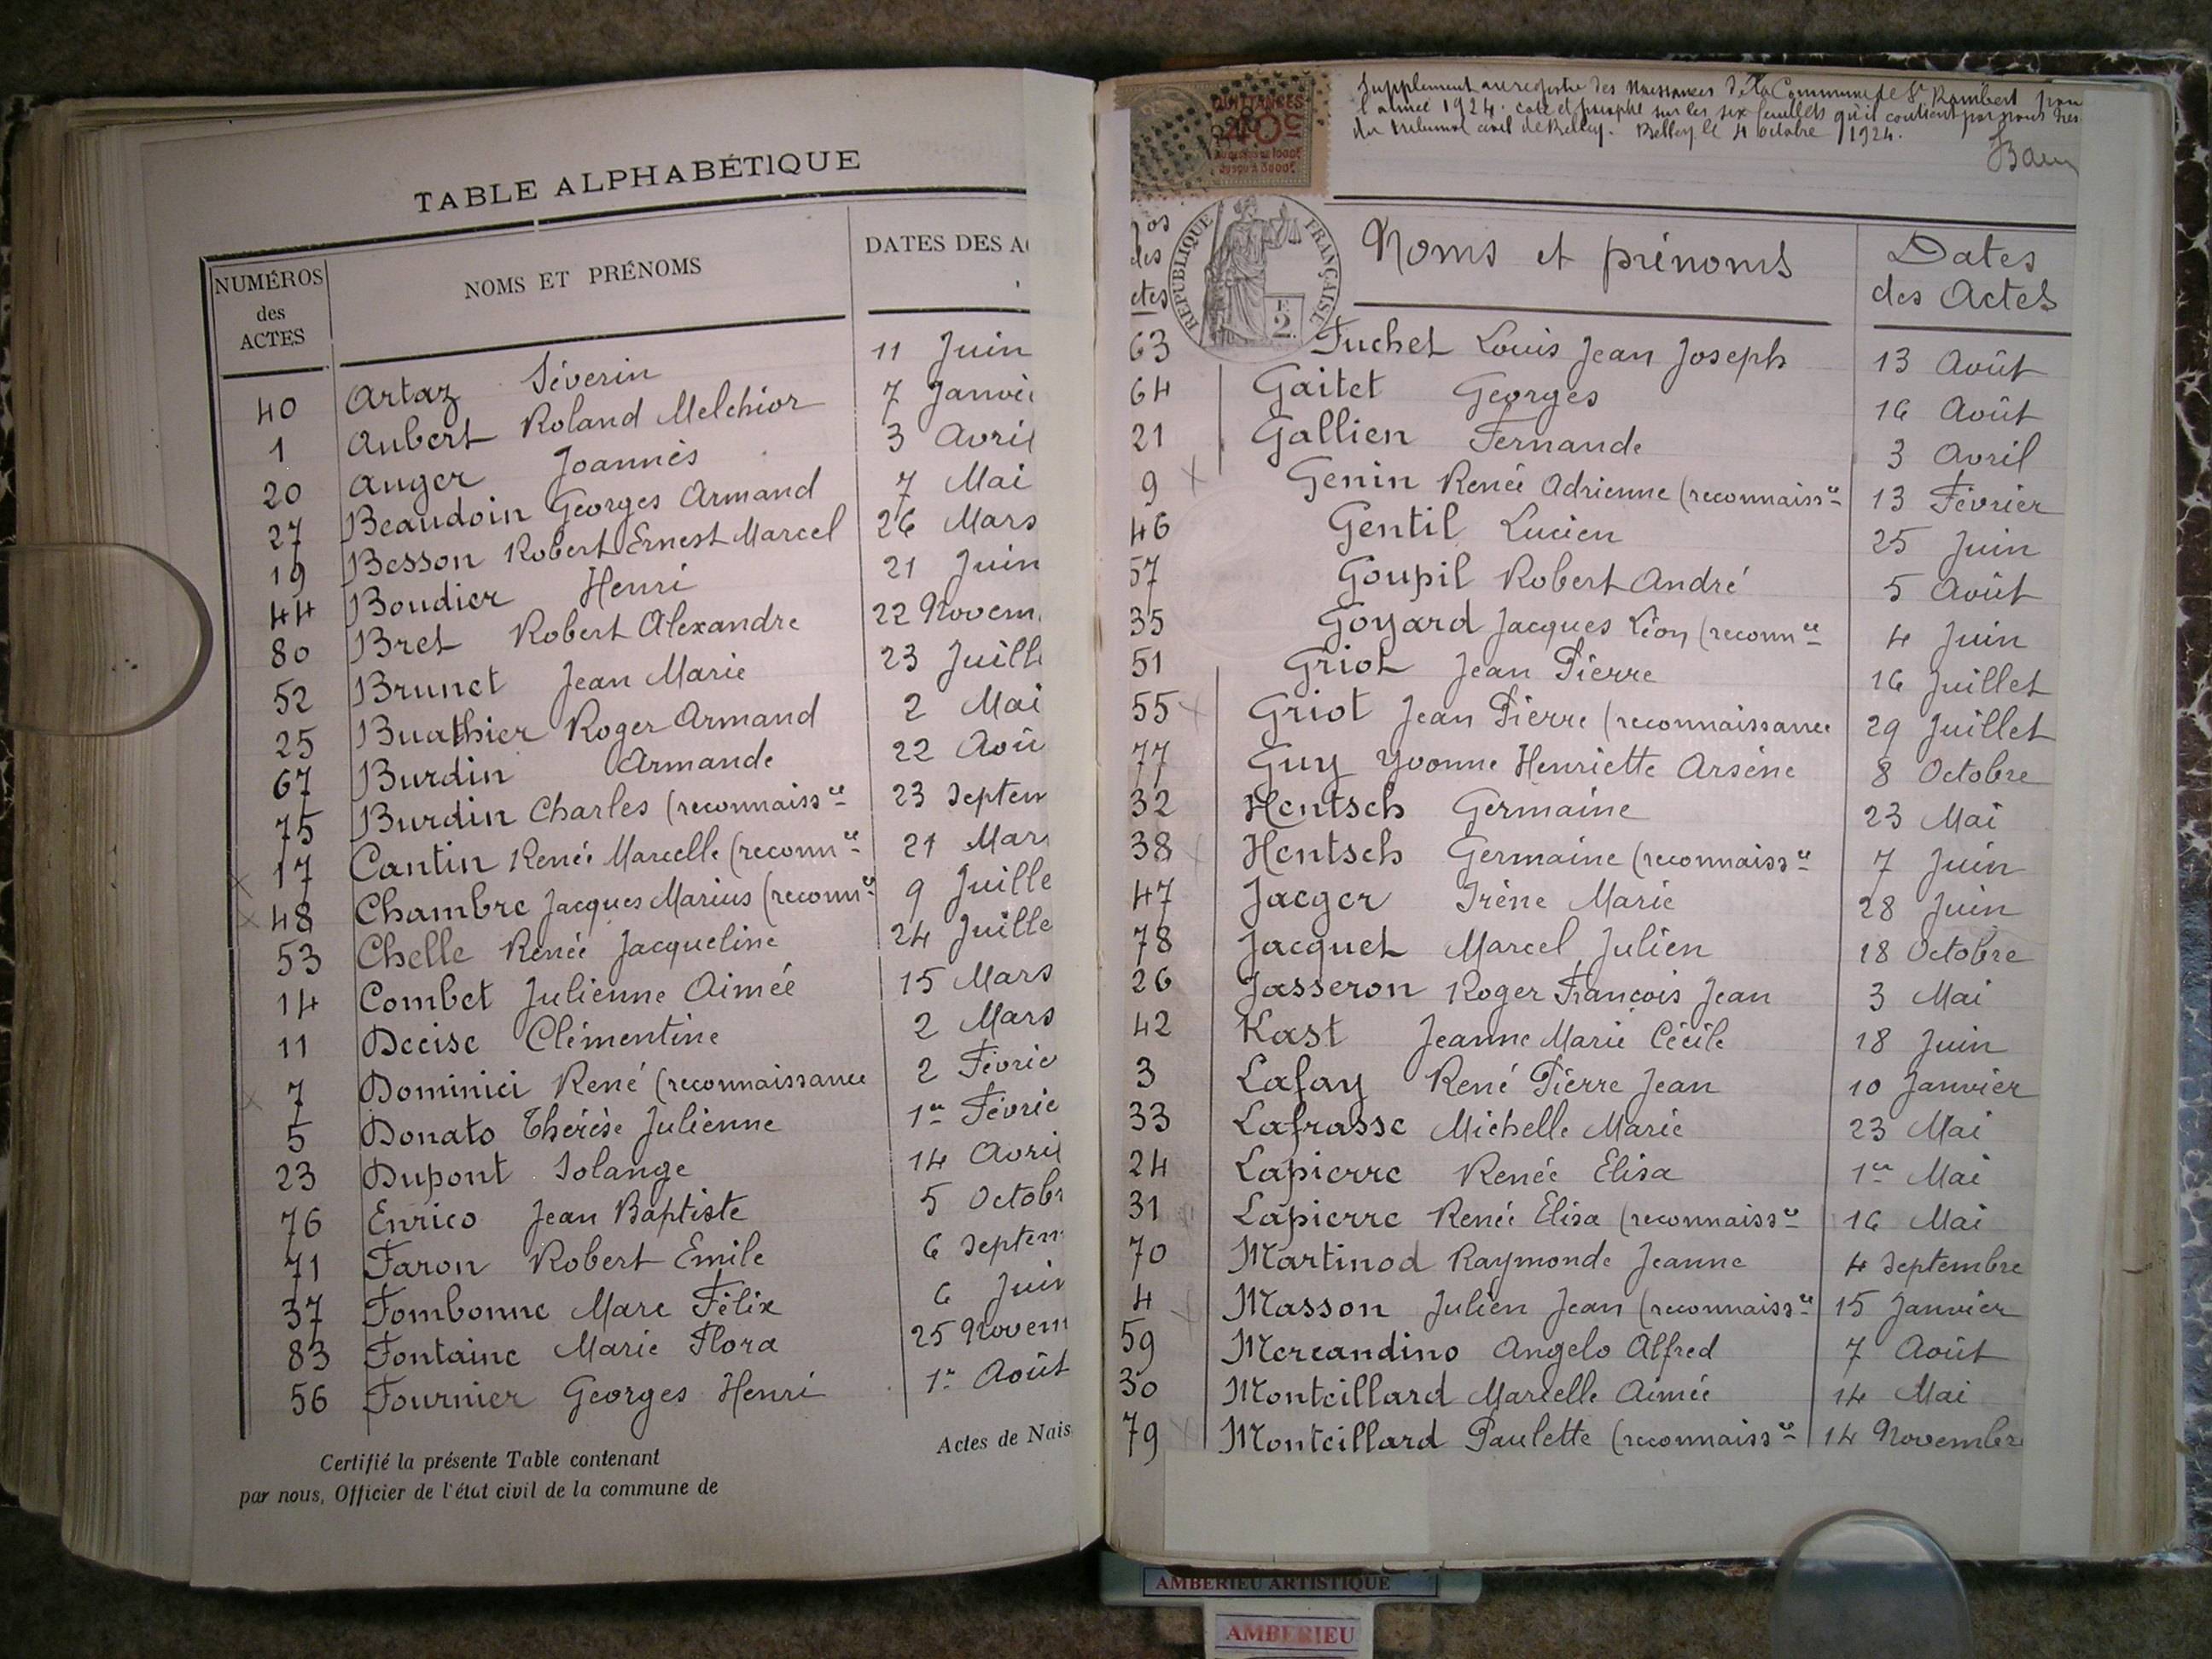 TABLE ALPHABÉTIQUE
NUMÉROS des ACTES NOMS ET PRÉNOMS DATES DES A
40 Artaz Séverin 11 Juin
1 Aubert Roland Melchior 7 Janvi
20 Auger Joannès 3 Avril
27 Beaudoin Georges Armand 7 Mai
19 Besson Robert Ernest Marcel 26 Mars
44 Boudier Henri 21 Juin
80 Bret Robert Alexandre 22 Novem
52 Brunet Jean Marie 23 Juill
25 Buathier Roger Armand 2 Mai
67 Burdin Armande 22 Aoû
75 Burdin Charles (reconnaiss ce 23 Septem
x 17 Cantin Renée Marcelle (reconn ce 21 Mar
x 48 Chambre Jacques Marius (reconn ce 9 Juille
53 Chelle Renée Jacqueline 24 Juille
14 Combet Julienne Aimée 15 Mars
11 Decise Clémentine 2 Mars
x 7 Dominici René (reconnaissance 2 Févrie
5 Donato Thérèse Julienne 1er Févrie
23 Dupont Solange 14 Avril
76 Enrico Jean Baptiste 5 Octobr
71 Faron Robert Emile 6 Septem
37 Fombonne Marc Félix 6 Juin
83 Fontaine Marie Flora 25 Novem
56 Fournier Georges Henri 1er Août
Certifié la présente Table contenant Actes de Nais
par nous, Officier de l'état civil de la commune de
Supplément au registre des Naissances de la Commune de St Rambert pour
l'année 1924. coté et paraphé sur les six feuillets qu'il contient par nous
du tribunal civil de Belley. Belley le 4 octobre 1924.
QUITTANCES
RÉPUBLIQUE FRANÇAISE
F. 2.
Nos des ctes Noms et prénoms Dates des Actes
63 Fuchet Louis Jean Joseph 13 Août
64 Gaitet Georges 16 Août
21 Gallien Fernande 3 Avril
9 x Genin Renée Adrienne (reconnaiss ce 13 Février
46 Gentil Lucien 25 Juin
57 Goupil Robert André 5 Août
35 Goyard Jacques Léon (reconn ce 4 Juin
51 Griot Jean Pierre 16 Juillet
55 x Griot Jean Pierre (reconnaissance 29 Juillet
77 Guy Yvonne Henriette Arsène 8 Octobre
32 Hentsch Germaine 23 Mai
38 x Hentsch Germaine (reconnaiss ce 7 Juin
47 Jaeger Irène Marie 28 Juin
78 Jacquet Marcel Julien 18 Octobre
26 Jasseron Roger François Jean 3 Mai
42 Kast Jeanne Marie Cécile 18 Juin
3 Lafay René Pierre Jean 10 Janvier
33 Lafrasse Michelle Marie 23 Mai
24 Lapierre Renée Elisa 1er Mai
31 Lapierre Renée Elisa (reconnaiss ce 16 Mai
70 Martinod Raymonde Jeanne 4 Septembre
4 x Masson Julien Jean (reconnaiss ce 15 Janvier
59 Mercandino Angelo Alfred 7 Août
30 Monteillard Marcelle Aimée 14 Mai
79 x Monteillard Paulette (reconnaiss ce 14 Novembre
AMBERIEU ARTISTIQUE
AMBERIEU